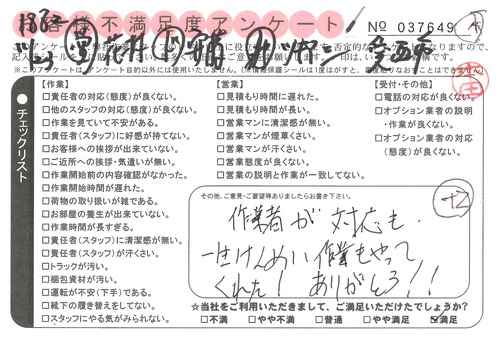 お客様不満足度アンケート
No 037649
チェックリスト
【作業】
□責任者の対応(態度)が良くない。
□他のスタッフの対応(態度)が良くない。
□作業を見ていて不安がある。
□責任者(スタッフ)に好感が持てない。
□お客様への挨拶が出来ていない。
□ご近所への挨拶・気遣いが無い。
□作業開始前の内容確認がなかった。
□作業開始時間が遅れた。
□荷物の取り扱いが雑である。
□お部屋の養生が出来ていない。
□作業時間が長すぎる。
□責任者(スタッフ)に清潔感が無い。
□責任者(スタッフ)が汗くさい。
□トラックが汚い。
□梱包資材が汚い。
□運転が不安(下手)である。
□靴下の履き替えをしてない。
□スタッフにやる気がみられない。
【営業】
□見積もり時間に遅れた。
□見積もり時間が長い。
□営業マンに清潔感が無い。
□営業マンが煙草くさい。
□営業マンが汗くさい。
□営業態度が良くない。
□営業の説明と作業が一致してない。
【受付・その他】
□電話の対応が良くない。
□オプション業者の説明
・作業が良くない。
□オプション業者の対応
(態度)が良くない。
その他、ご意見・ご要望等ありましたらお書き下さい。
作業者が対応も
一生けんめい作業もやって
くれた! ありがとう!!
☆当社をご利用いただきまして、ご満足いただけたでしょうか?
□不満 □やや不満 □普通 □やや満足 ☑満足